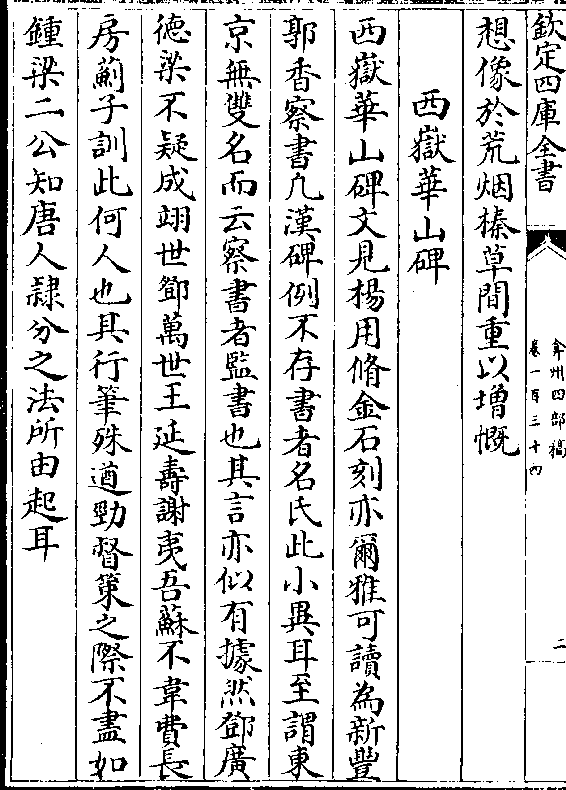 欽定四庫全書
弇州四部稿
卷一百三十四
二
想像於荒烟榛草間重以増慨
西嶽華山碑
西嶽華山碑文見楊用脩金石刻亦爾雅可讀為新豐
郭香察書凡漢碑例不存書者名氏此小異耳至謂東
京無雙名而云察書者監書也其言亦似有據然鄧廣
徳梁不疑成翊世鄧萬世王延壽謝夷吾蘇不韋費長
房薊子訓此何人也其行筆殊遒勁督策之際不盡如
鍾梁二公知唐人隸分之法所由起耳